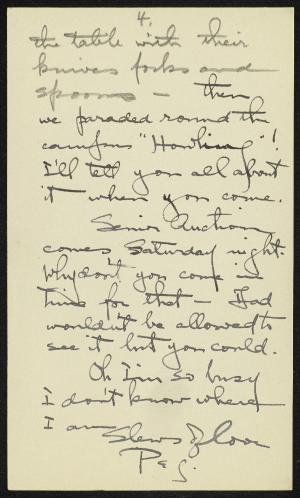 4.
the table with their
knives forks and
spoons — then
we paraded round the
campus "Howling"!
I'll tell you all about
it when you come.
Senior Auction
comes Saturday night.
Why don't you come in
time for that — Dad
wouldn't be allowed to
see it but you could.
Oh I'm so busy
I don't know where
I am
Slews of love
Peg.